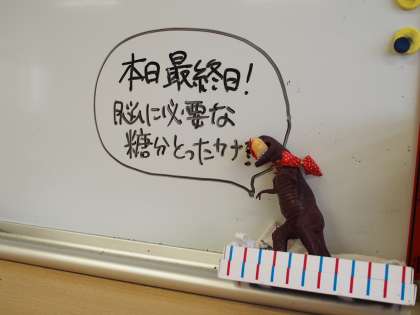 本日最終日!
脳に必要な
糖分とったカナ!